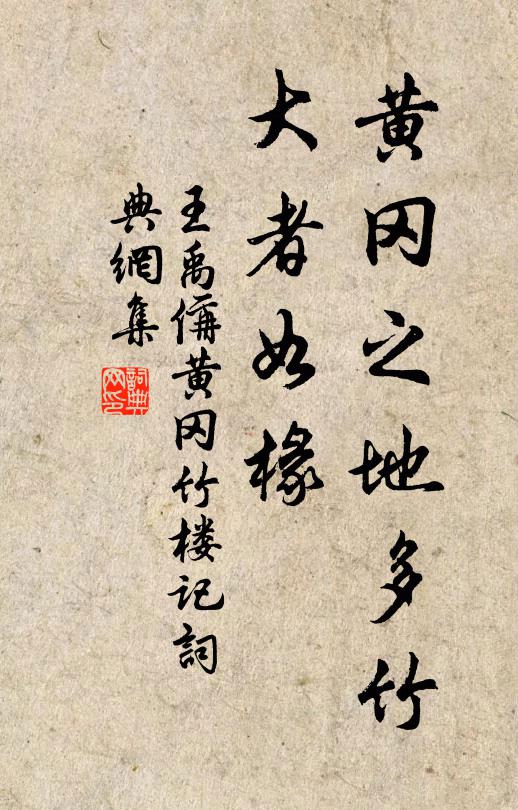 黄冈之地多竹
大者如椽
王禹偁黄冈竹楼记詞
典網集
詞典
网印